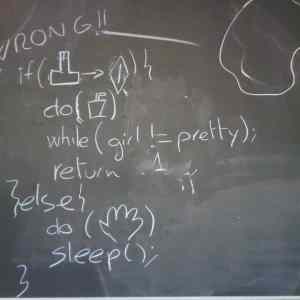 WRONG!!
if( → ){
do( )
while(girl != pretty);
return 1;
}else{
do ( )
sleep();
}